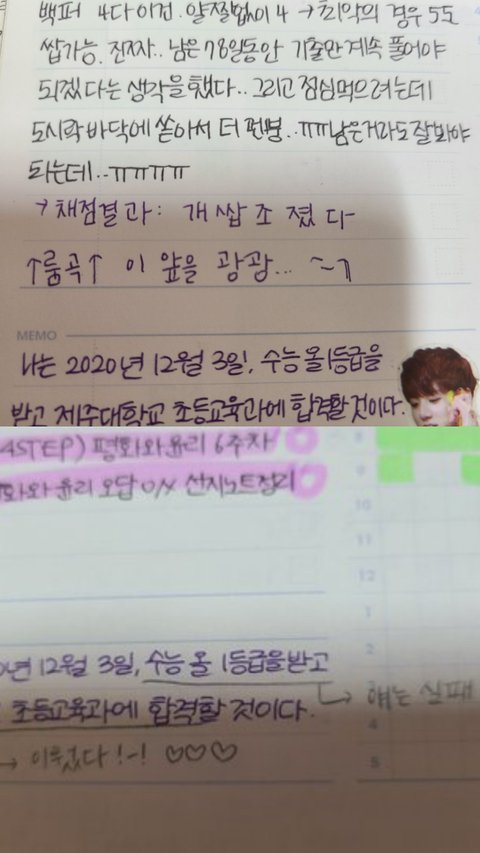 백퍼 4다 이건. 얄짤없이 4 → 최악의 경우 5도
쌉가능. 진짜.. 남은 78일동안 기출만 계속 풀어야
되겠다는 생각을 했다.. 그리고 점심먹으려는데
도시락 바닥에 쏟아서 더 펀병..ㅠㅠ 남은거라도 잘봐야
되는데..ㅠㅠㅠㅠ
→ 채점결과: 개쌉조졌다
↑룸곡↑ 이 앞을 광광... ㄱ
MEMO
나는 2020년 12월 3일, 수능 올1등급을
받고 제주대학교 초등교육과에 합격할 것이다.
4STEP) 평화와 윤리 6주차
화와 윤리 오답 O/X 선지노트정리
8
9
10
11
12
1
2
년 12월 3일, 수능 올 1등급을 받고
↳ 얘는 실패
초등교육과에 합격할 것이다.
4
→ 이뤘다!-! ♡♡♡
5